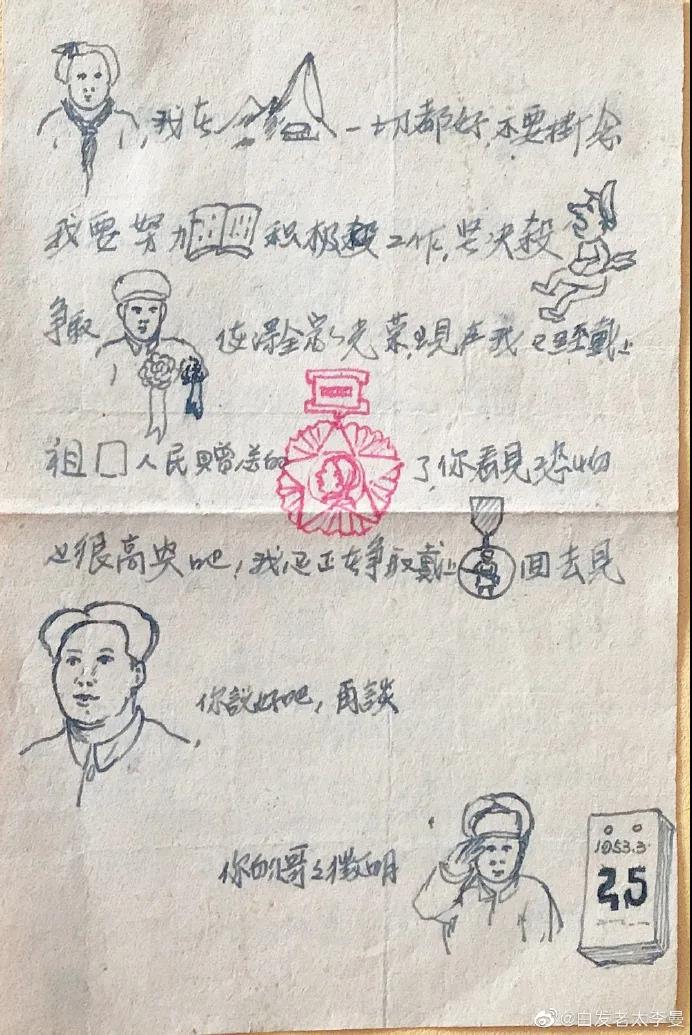 ,我在 一切都好,不要掛念
我要努力 积极 工作,坚决殺
争取 使得全家光荣,現在我已經戴上
祖囗人民赠送的 了,你看見恐怕
也很高兴吧,我还正在争取戴上 回去見
,你說好吧,再談
你的哥々徵明
1953.3.
25
@白发老太李曼